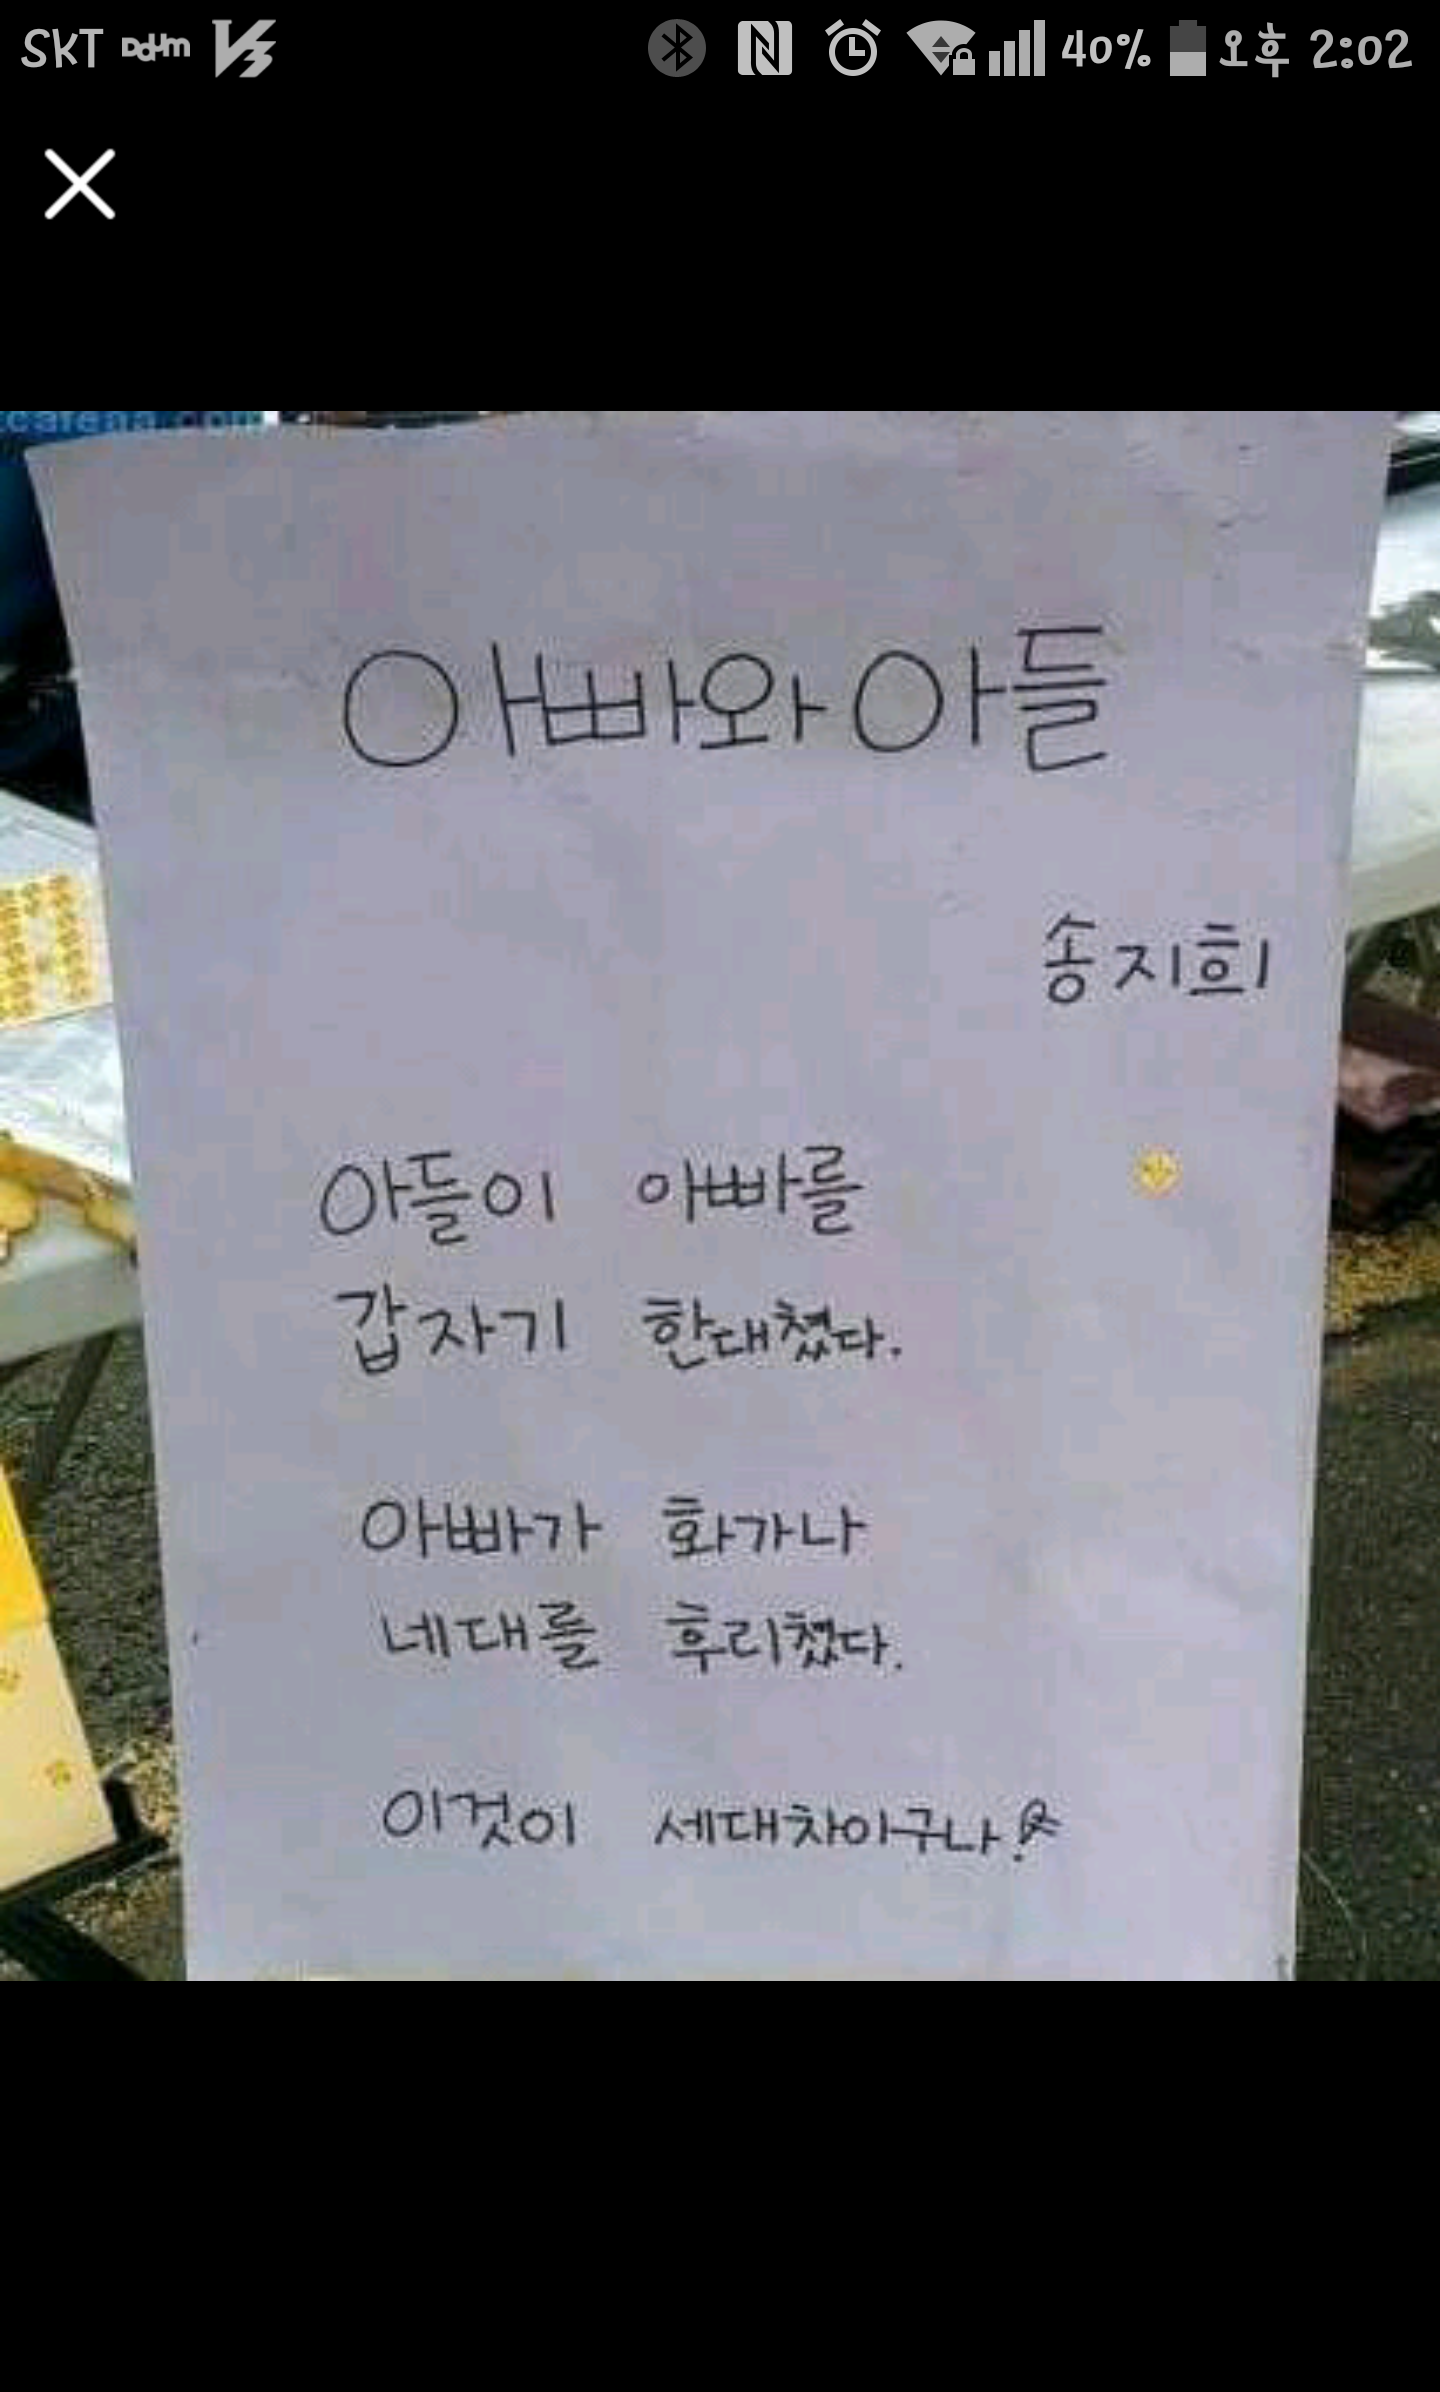 SKT Daum V3 40% 오후 2:02
아빠와 아들
송지희
아들이 아빠를
갑자기 한대쳤다.
아빠가 화가나
네대를 후리쳤다.
이것이 세대차이구나!